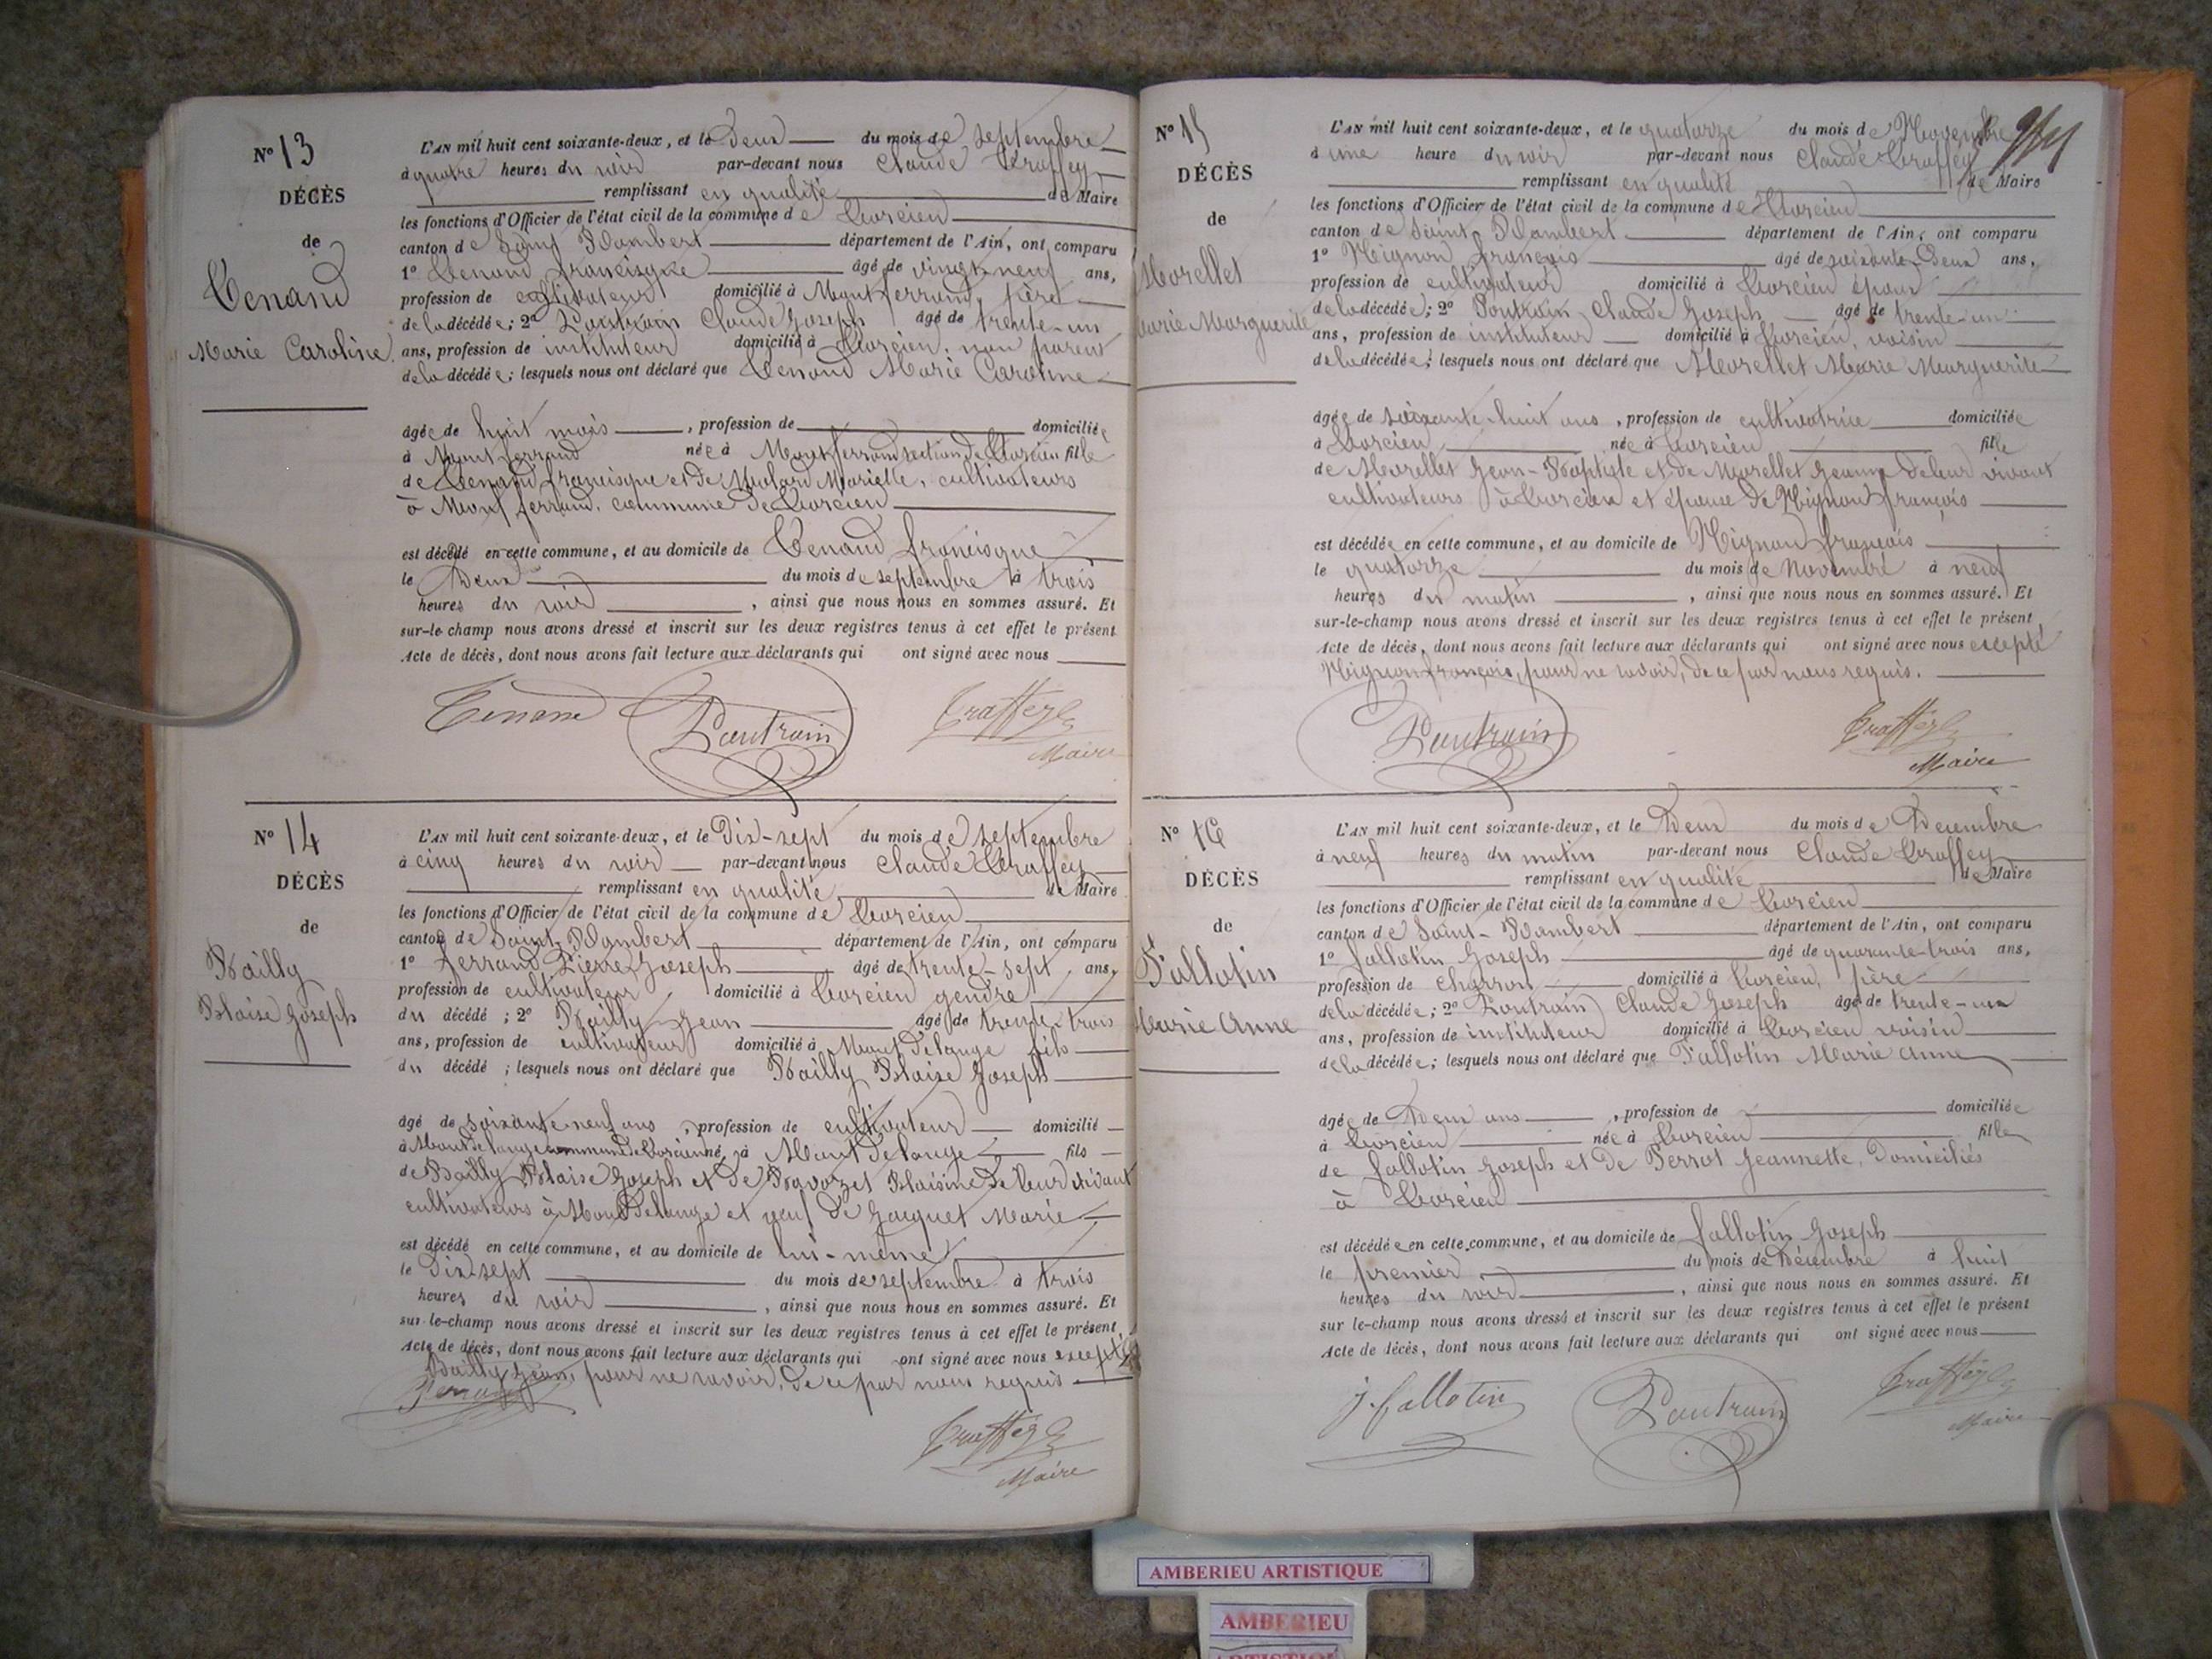 N° 13
DÉCÈS
de
Tenand
Marie Caroline
L'AN mil huit cent soixante-deux, et le Deux du mois de septembre
à quatre heures du soir par-devant nous Claude Traffey
remplissant en qualité de Maire
les fonctions d'Officier de l'état civil de la commune de Torcieu
canton de Saint Rambert département de l'Ain, ont comparu
1° Tenand francisque âgé de vingt-neuf ans,
profession de cultivateur domicilié à Mont ferrand, père
de la décédée; 2° Pautrain Claude Joseph âgé de trente-un
ans, profession de instituteur domicilié à Torcieu, non parent
de la décédée; lesquels nous ont déclaré que Tenand Marie Caroline
âgée de huit mois, profession de domiciliée
à Mont ferrand née à Mont ferrand section de Torcieu fille
de Tenand francisque et de Molard Mariette, cultivateurs
à Mont ferrand, commune de Torcieu
est décédé en cette commune, et au domicile de Tenand francisque
le Deux du mois de septembre à trois
heures du soir, ainsi que nous nous en sommes assuré. Et
sur-le-champ nous avons dressé et inscrit sur les deux registres tenus à cet effet le présent
Acte de décès, dont nous avons fait lecture aux déclarants qui ont signé avec nous
Tenand Pautrain Traffey
Maire
N° 14
DÉCÈS
de
Bailly
Blaise Joseph
L'AN mil huit cent soixante-deux, et le Dix-sept du mois de septembre
à cinq heures du soir par-devant nous Claude Traffey
remplissant en qualité de Maire
les fonctions d'Officier de l'état civil de la commune de Torcieu
canton de Saint Rambert département de l'Ain, ont comparu
1° ferrand Pierre Joseph âgé de trente-sept ans,
profession de cultivateur domicilié à Torcieu gendre
du décédé; 2° Bailly Jean âgé de trente-trois
ans, profession de cultivateur domicilié à Mont Delange fils
du décédé; lesquels nous ont déclaré que Bailly Blaise Joseph
âgé de soixante-neuf ans, profession de cultivateur domicilié
à Mont Delange commune de Torcieu né à Mont Delange fils
de Bailly Blaise Joseph et de Blaisine de leur vivant
cultivateurs à Mont Delange et veuf de Jacquet Marie
est décédé en cette commune, et au domicile de lui-même
le Dix-sept du mois de septembre à trois
heures du soir, ainsi que nous nous en sommes assuré. Et
sur-le-champ nous avons dressé et inscrit sur les deux registres tenus à cet effet le présent
Acte de décès, dont nous avons fait lecture aux déclarants qui ont signé avec nous excepté
Bailly Jean, pour ne savoir, de ce par nous requis
Traffey
Maire
N° 15
DÉCÈS
de
Morellet
Marie Marguerite
L'AN mil huit cent soixante-deux, et le quatorze du mois de Novembre
à une heure du soir par-devant nous Claude Traffey
remplissant en qualité de Maire
les fonctions d'Officier de l'état civil de la commune de Torcieu
canton de Saint-Rambert département de l'Ain, ont comparu
1° Mignon françois âgé de soixante-Deux ans,
profession de cultivateur domicilié à Torcieu époux
de la décédée; 2° Pautrain Claude Joseph âgé de trente-un
ans, profession de instituteur domicilié à Torcieu, voisin
de la décédée; lesquels nous ont déclaré que Morellet Marie Marguerite
âgée de soixante-huit ans, profession de cultivatrice domiciliée
à Torcieu née à Torcieu fille
de Morellet Jean-Baptiste et de Morellet Jeanne de leur vivant
cultivateurs à Torcieu et épouse de Mignon françois
est décédée en cette commune, et au domicile de Mignon françois
le quatorze du mois de Novembre à neuf
heures du matin, ainsi que nous nous en sommes assuré. Et
sur-le-champ nous avons dressé et inscrit sur les deux registres tenus à cet effet le présent
Acte de décès, dont nous avons fait lecture aux déclarants qui ont signé avec nous excepté
Mignon françois, pour ne savoir, de ce par nous requis.
Pautrain Traffey
Maire
N° 16
DÉCÈS
de
Fallotin
Marie Anne
L'AN mil huit cent soixante-deux, et le Deux du mois de Décembre
à neuf heures du matin par-devant nous Claude Traffey
remplissant en qualité de Maire
les fonctions d'Officier de l'état civil de la commune de Torcieu
canton de Saint-Rambert département de l'Ain, ont comparu
1° fallotin Joseph âgé de quarante-trois ans,
profession de charron domicilié à Torcieu, père
de la décédée; 2° Pautrain Claude Joseph âgé de trente-un
ans, profession de instituteur domicilié à Torcieu voisin
de la décédée; lesquels nous ont déclaré que Fallotin Marie Anne
âgée de Deux ans, profession de domiciliée
à Torcieu née à Torcieu fille
de fallotin Joseph et de Perrot Jeannette, Domiciliés
à Torcieu
est décédée en cette commune, et au domicile de fallotin Joseph
le premier du mois de Décembre à huit
heures du soir, ainsi que nous nous en sommes assuré. Et
sur le-champ nous avons dressé et inscrit sur les deux registres tenus à cet effet le présent
Acte de décès, dont nous avons fait lecture aux déclarants qui ont signé avec nous
J. fallotin Pautrain Traffey
Maire
AMBERIEU ARTISTIQUE
AMBERIEU
ARTISTIQUE